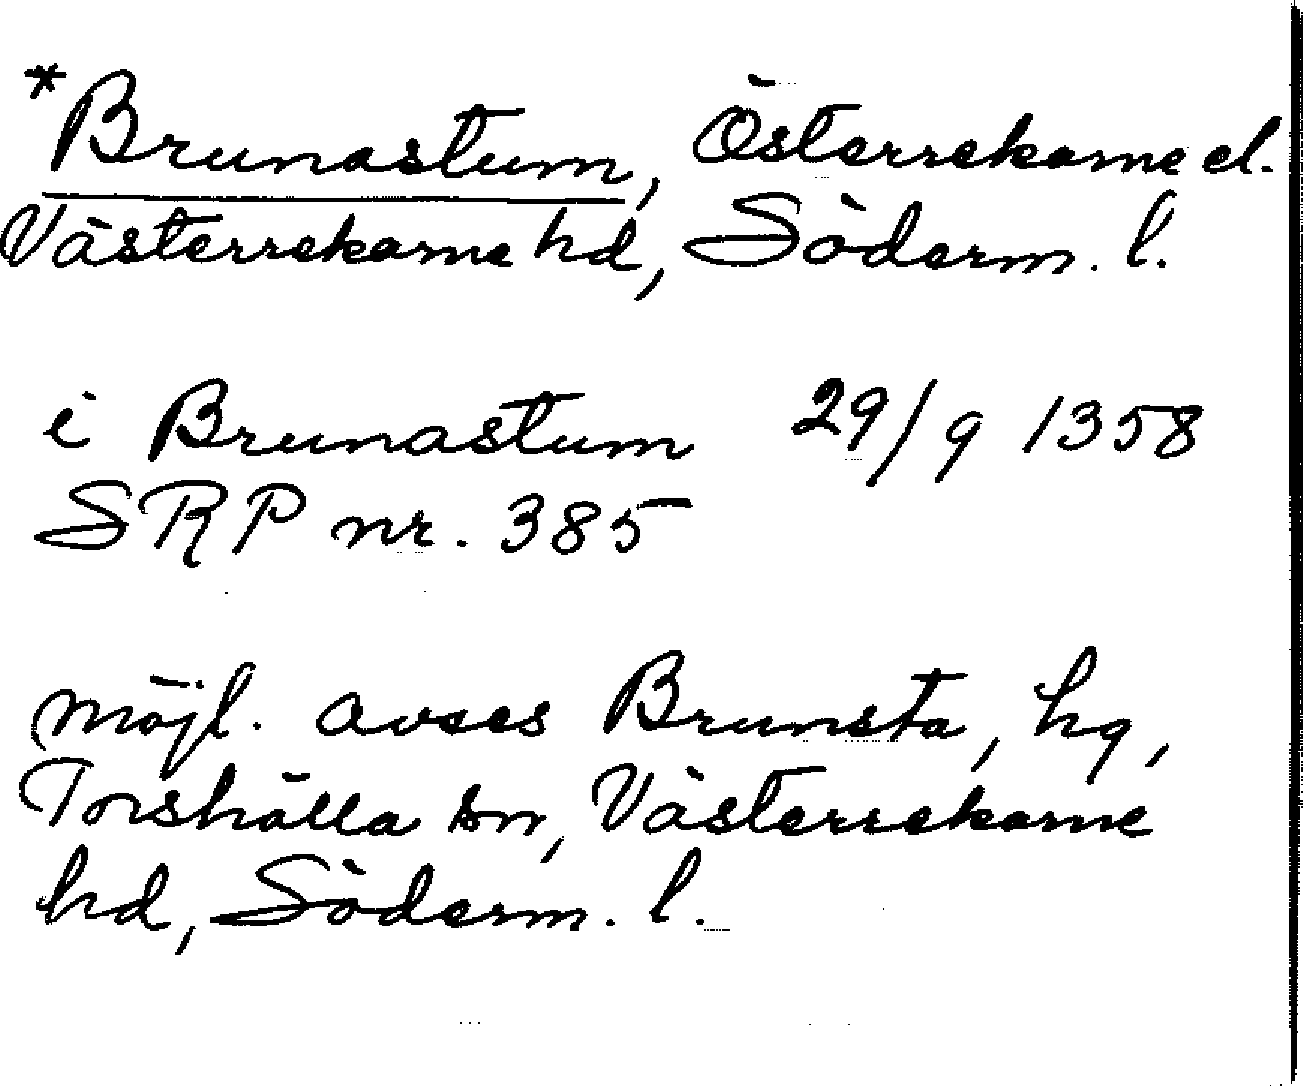 *Brunastum, Österrekarne el.
Västerrekarne hd, Söderm. l.
i Brunastum 29/9 1358
SRP nr. 385
möjl. avses Brunsta, hg,
Torshälla sn, Västerrekarne
hd, Söderm. l.